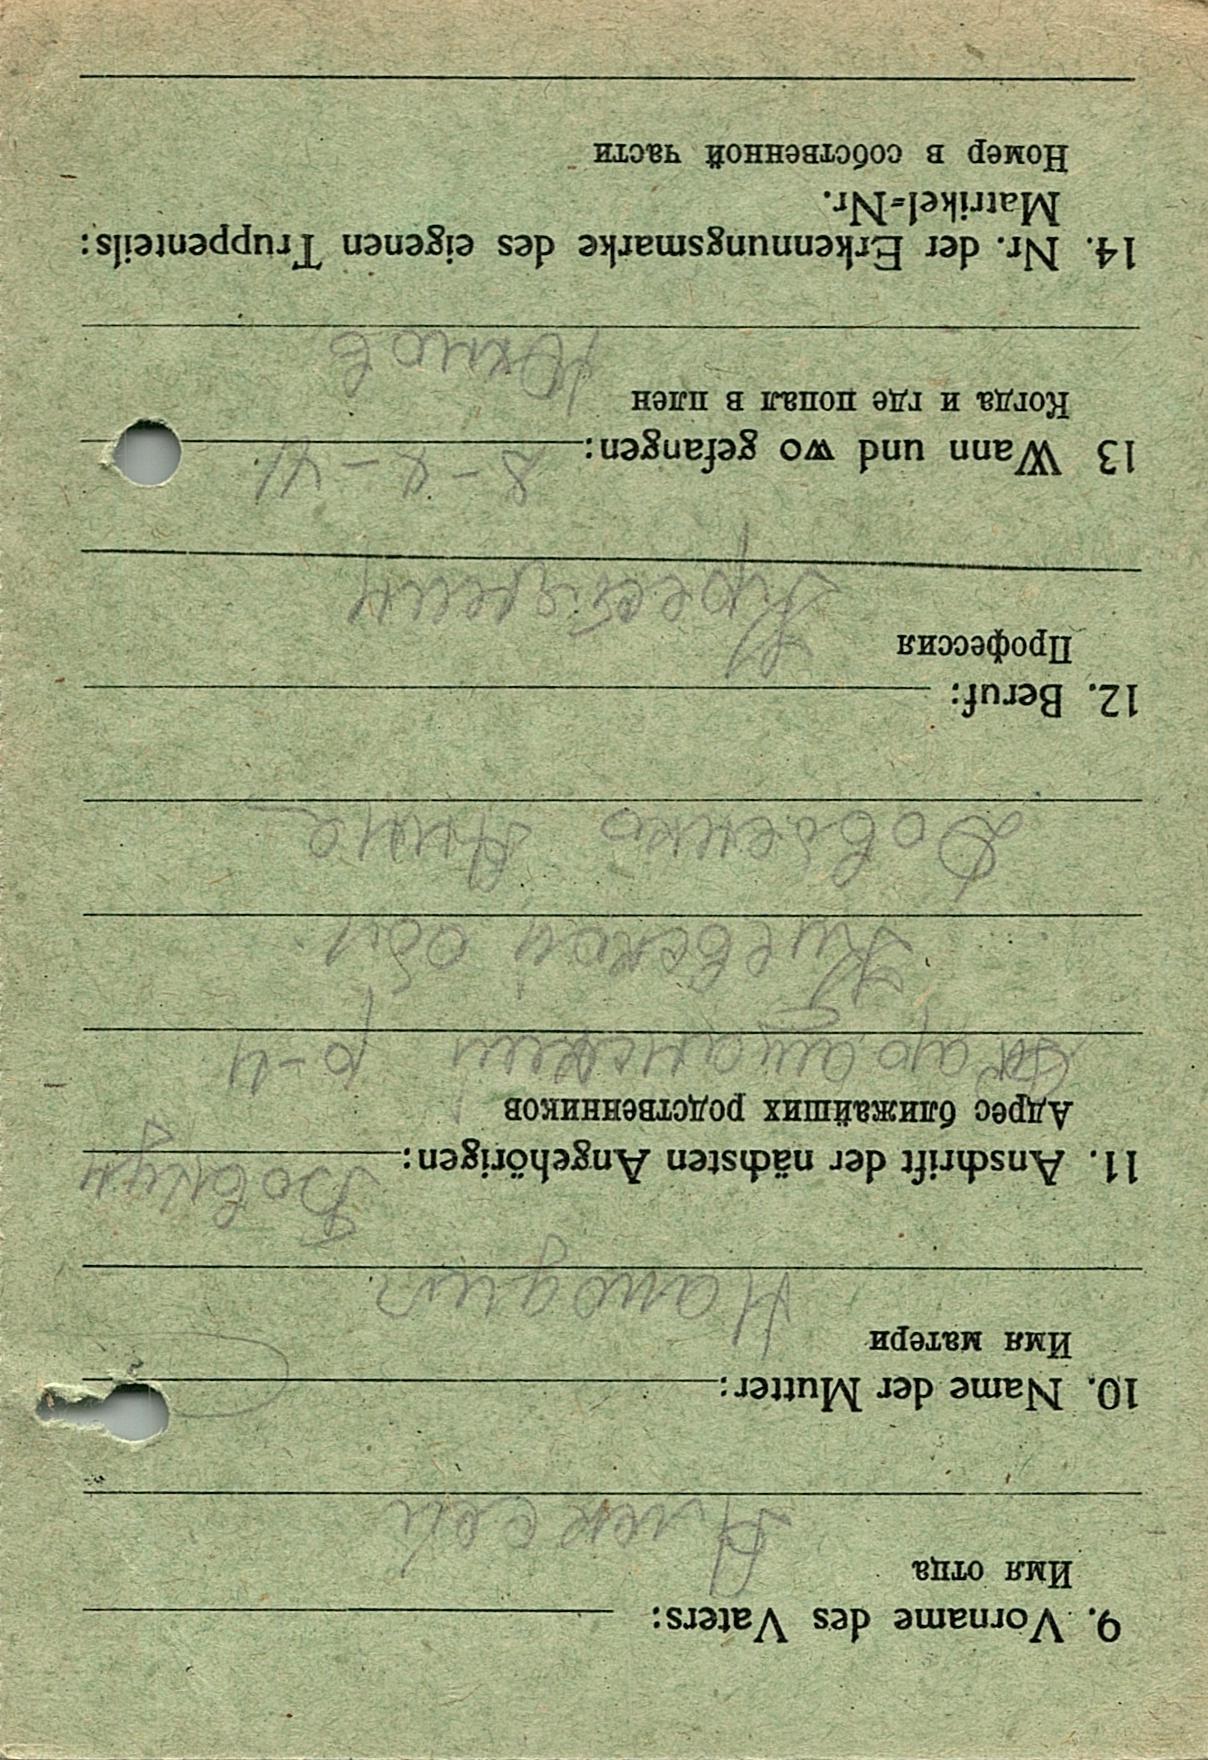 9. Vorname des Vaters:
Имя отца
Алексей
10. Name der Mutter:
Имя матери
11. Anschrift der nächsten Angehörigen:
Адрес ближайших родственников
р-н
Киевской обл
Довбенко Анна
12. Beruf:
Профессия
13 Wann und wo gefangen: 8-8-41
Когда и где попал в плен
14. Nr. der Erkennungsmarke des eigenen Truppenteils:
Matrikel=Nr.
Номер в собственной части